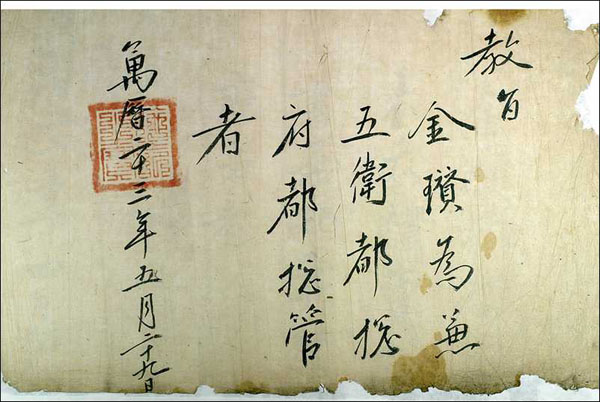 教旨
金瓚為兼
五衛都摠
府都摠管
者
萬曆二十三年五月二十九日